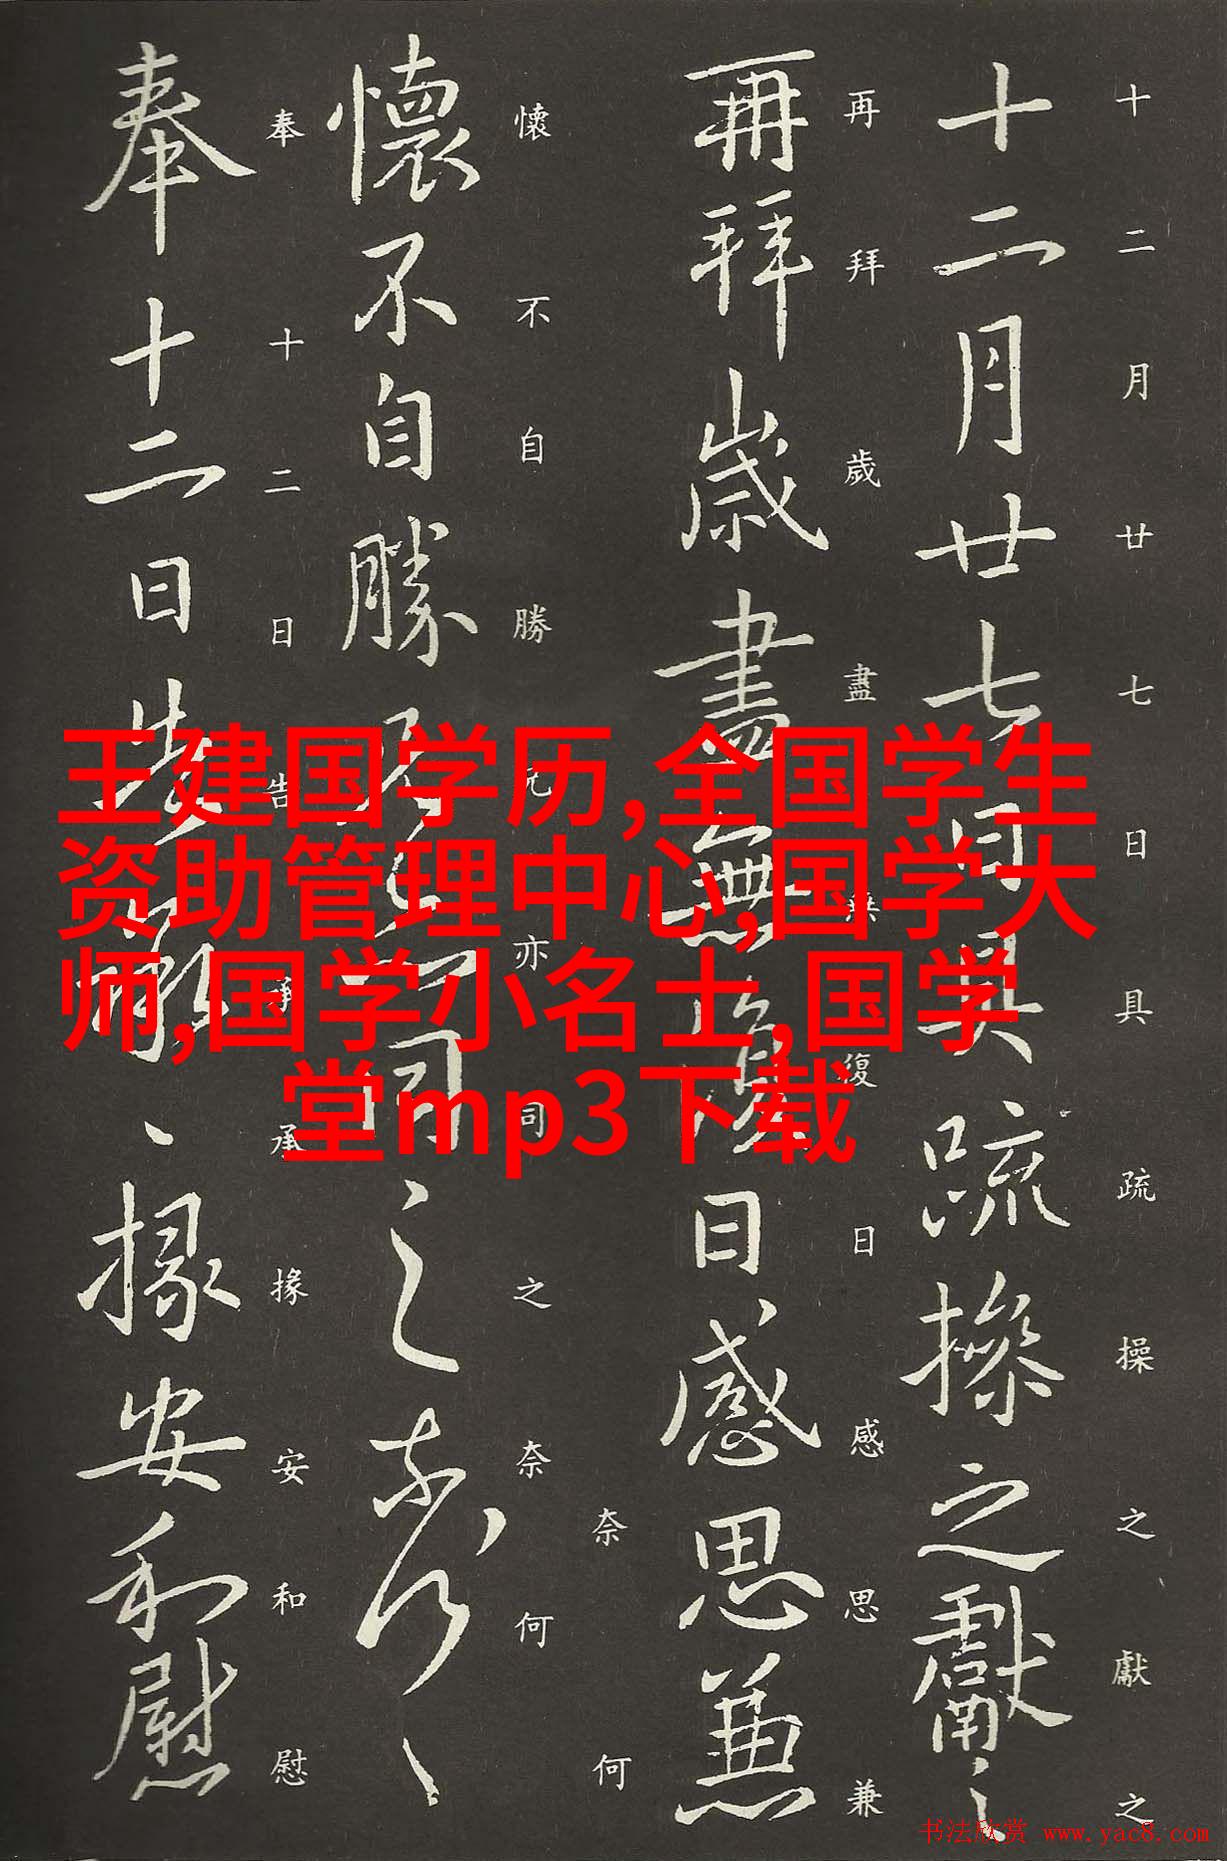 十二月廿七日具疏操之獻之
十二月廿七日具疏操之獻之
再拜歲盡無復日感思兼
再拜歲盡無復日感思兼
奈何
懷不自勝兄亦同之奈何
懷不自勝兄亦同之奈何
奉十二日告承承掾安和慰
奉十二日告承掾安和慰
王建国学历,全国学生
资助管理中心,国学大
师,国学小名士,国学
堂mp3下载
书法欣赏 www.yac8.com